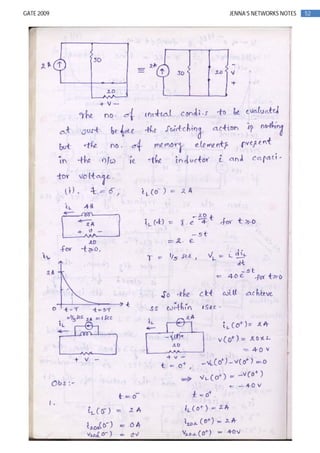 GATE 2009 JENNA'S NETWORKS NOTES 52
2A 5Ω ≡ 2A 5Ω 20 V
20
+ V −
The no. of initial condi.s to be evaluated
at just before the switching action is nothing
but the no. of memory elements present
in the n/w ie the inductor i and capaci-
tor voltage.
(i). t = 0⁻, iL(0⁻) = 2A
iL 4H
2A
+ 0 −
20
for t≥0.
iL(t) = I. e^(-20/4 t) for t≥0.
= 2. e^(-5t)
T = 1/5 sec, VL = L diL/dt
= 40 e^(-5t) for t≥0
iL
2A
0 t=T t=5T t
=1/5 sec =1sec
So the ckt will achieve
SS within 1sec.
iL 2A
+ V −
iL 2A
-VL(0⁺)
20
+ V −
iL(0⁺) = 2A
V(0⁺) = 20×2
= 40V
t = 0⁺, -VL(0⁺)-V(0⁺) = 0
⇒ VL(0⁺) = -V(0⁺)
= -40V
Obs:-
1. t = 0⁻ t = 0⁺
iL(0⁻) = 2A iL(0⁺) = 2A
i20Ω(0⁻) = 0A i20Ω(0⁺) = 2A
V20Ω(0⁻) = 0V V20Ω(0⁺) = 40V